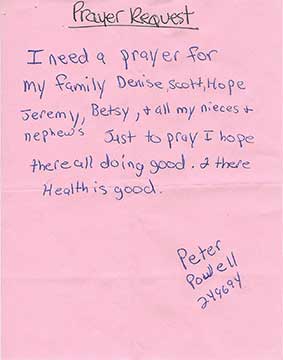 Prayer Request
I need a prayer for
my family Denise, Scott, Hope
Jeremy, Betsy, & all my nieces &
nephew's Just to pray I hope
there all doing good. & there
Health is good.
Peter
Powell
249694